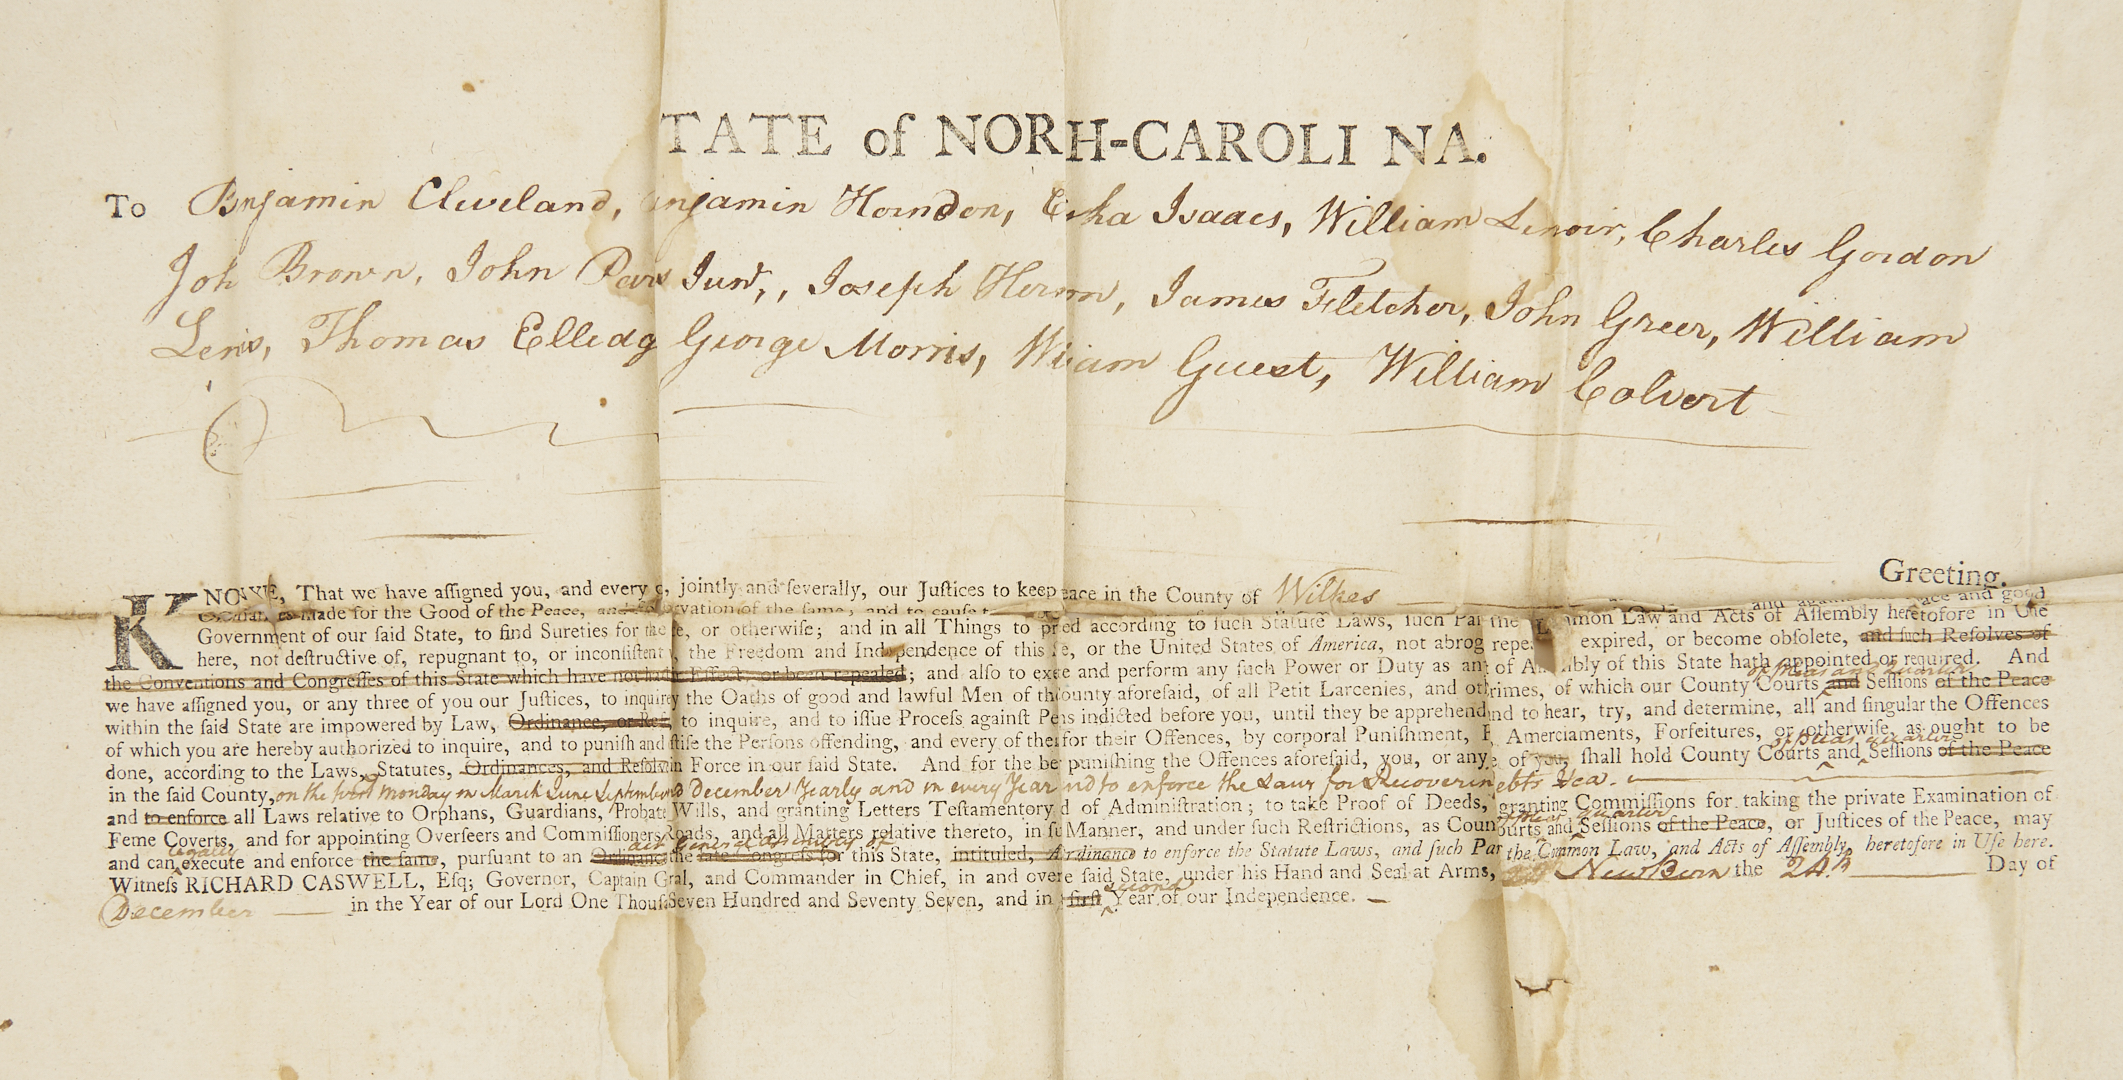 TATE of NORH-CAROLI NA.
To Bnjamin Cleveland, njamin Herndon, E ha Isaacs, William Lenoir, Charles Gordon
Joh Brown, John Parks Junr,, Joseph Hernn, James Fletcher, John Greer, William
Lewis, Thomas Elledg George Morris, Wiam Guest, William Colvert
Greeting.
KNOW YE, That we have assigned you, and every e, jointly and severally, our Justices to keep eace in the County of Wilkes
made for the Good of the Peace, and vation of the same; and to cause t and good
Government of our said State, to find Sureties for the e, or otherwise; and in all Things to p ed according to such Statute Laws, such Par the mmon Law and Acts of Assembly heretofore in Use
here, not destructive of, repugnant to, or inconsistent , the Freedom and Independence of this e, or the United States of America, not abrog repe expired, or become obsolete, and such Resolves of
the Conventions and Congresses of this State which have not had Effect, or been repealed; and also to exe e and perform any such Power or Duty as an of A bly of this State hath appointed or required. And
of Pleas and Quarter
we have assigned you, or any three of you our Justices, to inquire y the Oaths of good and lawful Men of th ounty aforesaid, of all Petit Larcenies, and ot rimes, of which our County Courts and Sessions of the Peace
within the said State are impowered by Law, Ordinance, or Re to inquire, and to issue Process against Pe ns indicted before you, until they be apprehend nd to hear, try, and determine, all and singular the Offences
of which you are hereby authorized to inquire, and to punish and stise the Persons offending, and every of the for their Offences, by corporal Punishment, F Amerciaments, Forfeitures, or otherwise, as ought to be
of Pleas quarter
done, according to the Laws, Statutes, Ordinances, and Resolv in Force in our said State. And for the be punishing the Offences aforesaid, you, or any e of you, shall hold County Courts and Sessions of the Peace
in the said County, on the first Monday in March June September December Yearly and in every Year nd to enforce the Laws for Recoverin ebts
and to enforce all Laws relative to Orphans, Guardians, Probate Wills, and granting Letters Testamentory d of Administration; to take Proof of Deeds, granting Commissions for taking the private Examination of
of Pleas Quarter
Feme Coverts, and for appointing Overseers and Commissioners Roads, and all Matters relative thereto, in su Manner, and under such Restrictions, as Coun ourts and Sessions of the Peace, or Justices of the Peace, may
legally act General Assembly of
and can execute and enforce the same, pursuant to an Ordinance the late Congress for this State, intituled, A rdinance to enforce the Statute Laws, and such Par the Common Law, and Acts of Assembly heretofore in Use here.
Witness RICHARD CASWELL, Esq; Governor, Captain G ral, and Commander in Chief, in and over e said State, under his Hand and Seal at Arms, at New Bern the 24th Day of
second
December in the Year of our Lord One Thous Seven Hundred and Seventy Seven, and in first Year of our Independence.